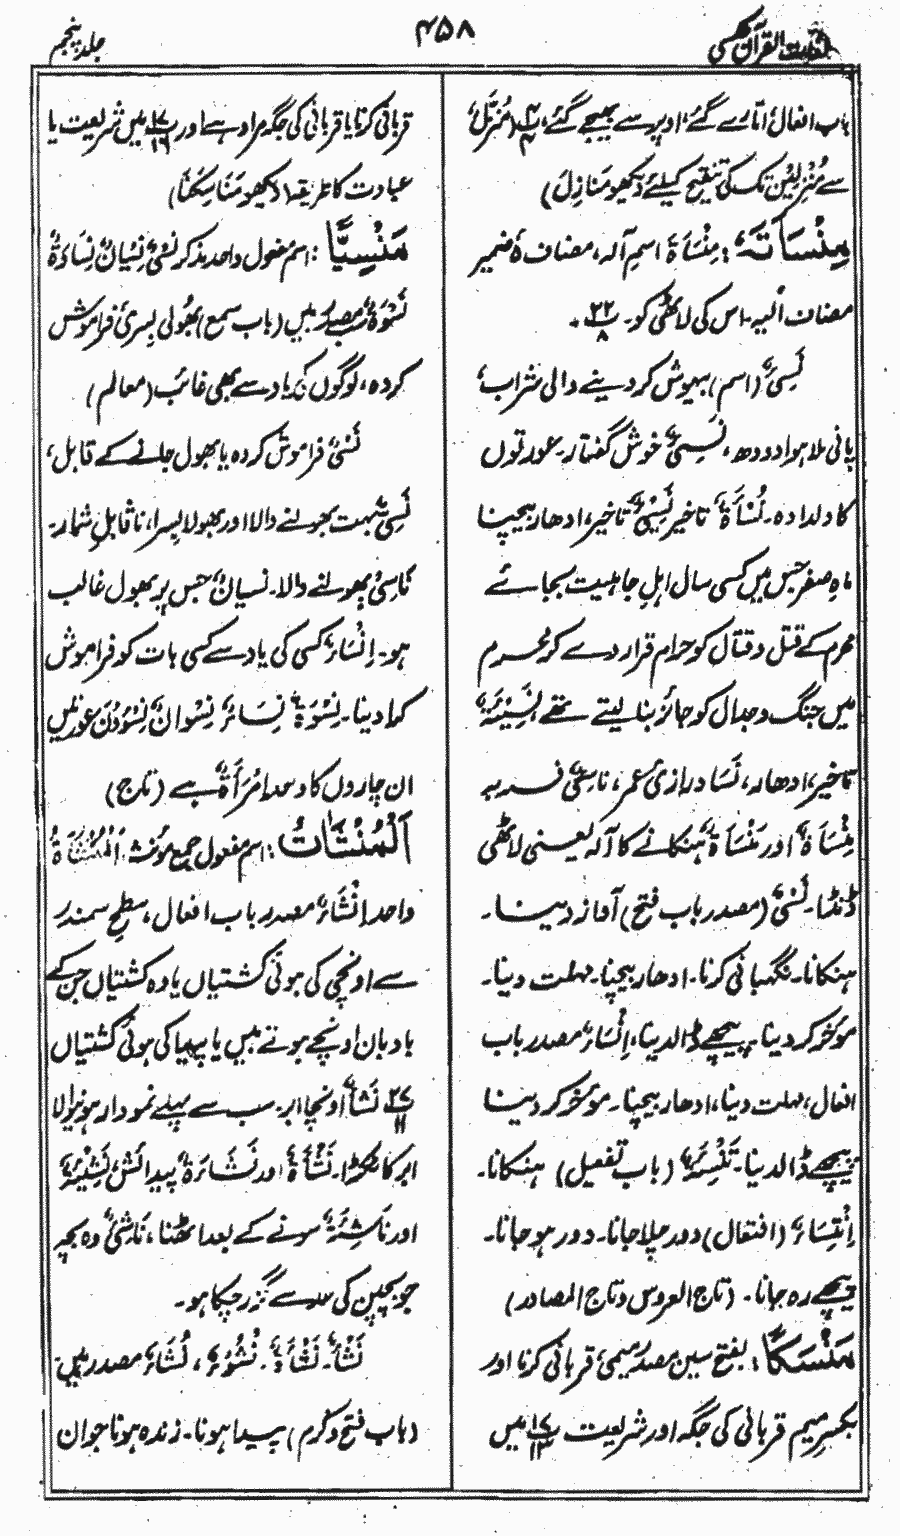 لغات القرآن
۴۵۸
جلد پنجم
باب افعال اتارے گئے، اوپر سے بھیجے گئے، (مُنَزَّل
سے مُنْزَلِیْن تک کی تنقیح کیلئے دیکھو مَنَازِل)
مِنْسَأَتَهٗ: مِنْسَأَۃ اسم آلہ، مضاف ہٗ ضمیر
مضاف الیہ۔ اس کی لاٹھی کو۔ پ ۲۲ ۸
نَسِیْءٌ (اسم) بیہوش کر دینے والی شراب،
پانی ملا ہوا دودھ، نَسِیْءٌ خوش گفتار۔ عورتوں
کا دلدادہ۔ نُسْأَۃٌ تاخیر نَسِیْءٌ تاخیر، ادھار بیچنا
ماہ صفر جس میں کسی سال اہل جاہلیت بجائے
محرم کے قتل و قتال کو حرام قرار دے کر محرم
میں جنگ و جدال کو جائز بنا لیتے تھے، نَسِیْئَۃٌ
تاخیر، ادھار، نَسَا درازی عمر، نَاسِئٌ فربہ
مِنْسَأَۃٌ اور مَنْسَأَۃٌ ہنکانے کا آلہ یعنی لاٹھی
ڈنڈا۔ نَسْءٌ (مصدر باب فتح) آواز دینا۔
ہنکانا۔ نگہبانی کرنا۔ ادھار بیچنا۔ مہلت دینا۔
مؤخر کر دینا۔ پیچھے ڈالدینا، اِنْسَاءٌ مصدر باب
افعال، مہلت دینا، ادھار بیچنا۔ مؤخر کر دینا
پیچھے ڈالدینا۔ تَنْسِئَۃٌ (باب تفعیل) ہنکانا۔
اِنْتِسَاءٌ (افتعال) دور چلا جانا۔ دور ہو جانا۔
پیچھے رہ جانا۔ (تاج العروس و تاج المصادر)
مَنْسَکًا: بفتح سین مصدر میمی، قربانی کرنا اور
بکسر میم قربانی کی جگہ اور شریعت پ ۱۷ ۱۲ میں
قربانی کرنا یا قربانی کی جگہ مراد ہے اور پ ۱۷ ۱۶ میں شریعت یا
عبادت کا طریقہ (دیکھو مَنَاسِکَنَا)
مَنْسِیًّا: اسم مفعول واحد مذکر نَسْیٌ نِسْیَانٌ نِسَاءَۃٌ
نَسْوَۃٌ مصدر میں (باب سمع) بھولی بسری فراموش
کردہ، لوگوں کی یاد سے بھی غائب (معالم)
نَسْیٌ فراموش کردہ یا بھول جانے کے قابل،
نَسِیٌّ بہت بھولنے والا اور بھولا بسرا، ناقابل شمار۔
نَاسِیٌ بھولنے والا۔ نسیانٌ جس پر بھول غالب
ہو۔ اِنْسَاءٌ کسی کی یاد سے کسی بات کو فراموش
کرا دینا۔ نِسْوَۃٌ نِسَاءٌ نِسْوَانٌ نِسْوُوْنَ عورتیں
ان چاروں کا واحد اِمْرَأَۃٌ ہے (تاج)
اَلْمُنْشَاٰتُ: اسم مفعول جمع مؤنث، اَلْمُنْشَأَۃُ
واحد اِنْشَاءٌ مصدر باب افعال، سطح سمندر
سے اونچی کی ہوئی کشتیاں یا وہ کشتیاں جن کے
بادبان اونچے ہوتے ہیں یا پہیا کی ہوئی کشتیاں
پ ۲۷ ۱۱ نَشَأٌ اونچا ابر۔ سب سے پہلے نمودار ہونے والا
ابر کا ٹکڑا۔ نَشْأَۃٌ اور نَشَاءَۃٌ پیدائش، نَشِیْئَۃٌ
اور نَاشِئَۃٌ سونے کے بعد اٹھنا، نَاشِئٌ وہ بچہ
جو بچپن کی حد سے گزر چکا ہو۔
نَشْأٌ۔ نَشْأَۃٌ۔ نُشُوْءٌ، نَشَاءٌ مصدر ہیں
(باب فتح و کرم) پیدا ہونا۔ زندہ ہونا جوان